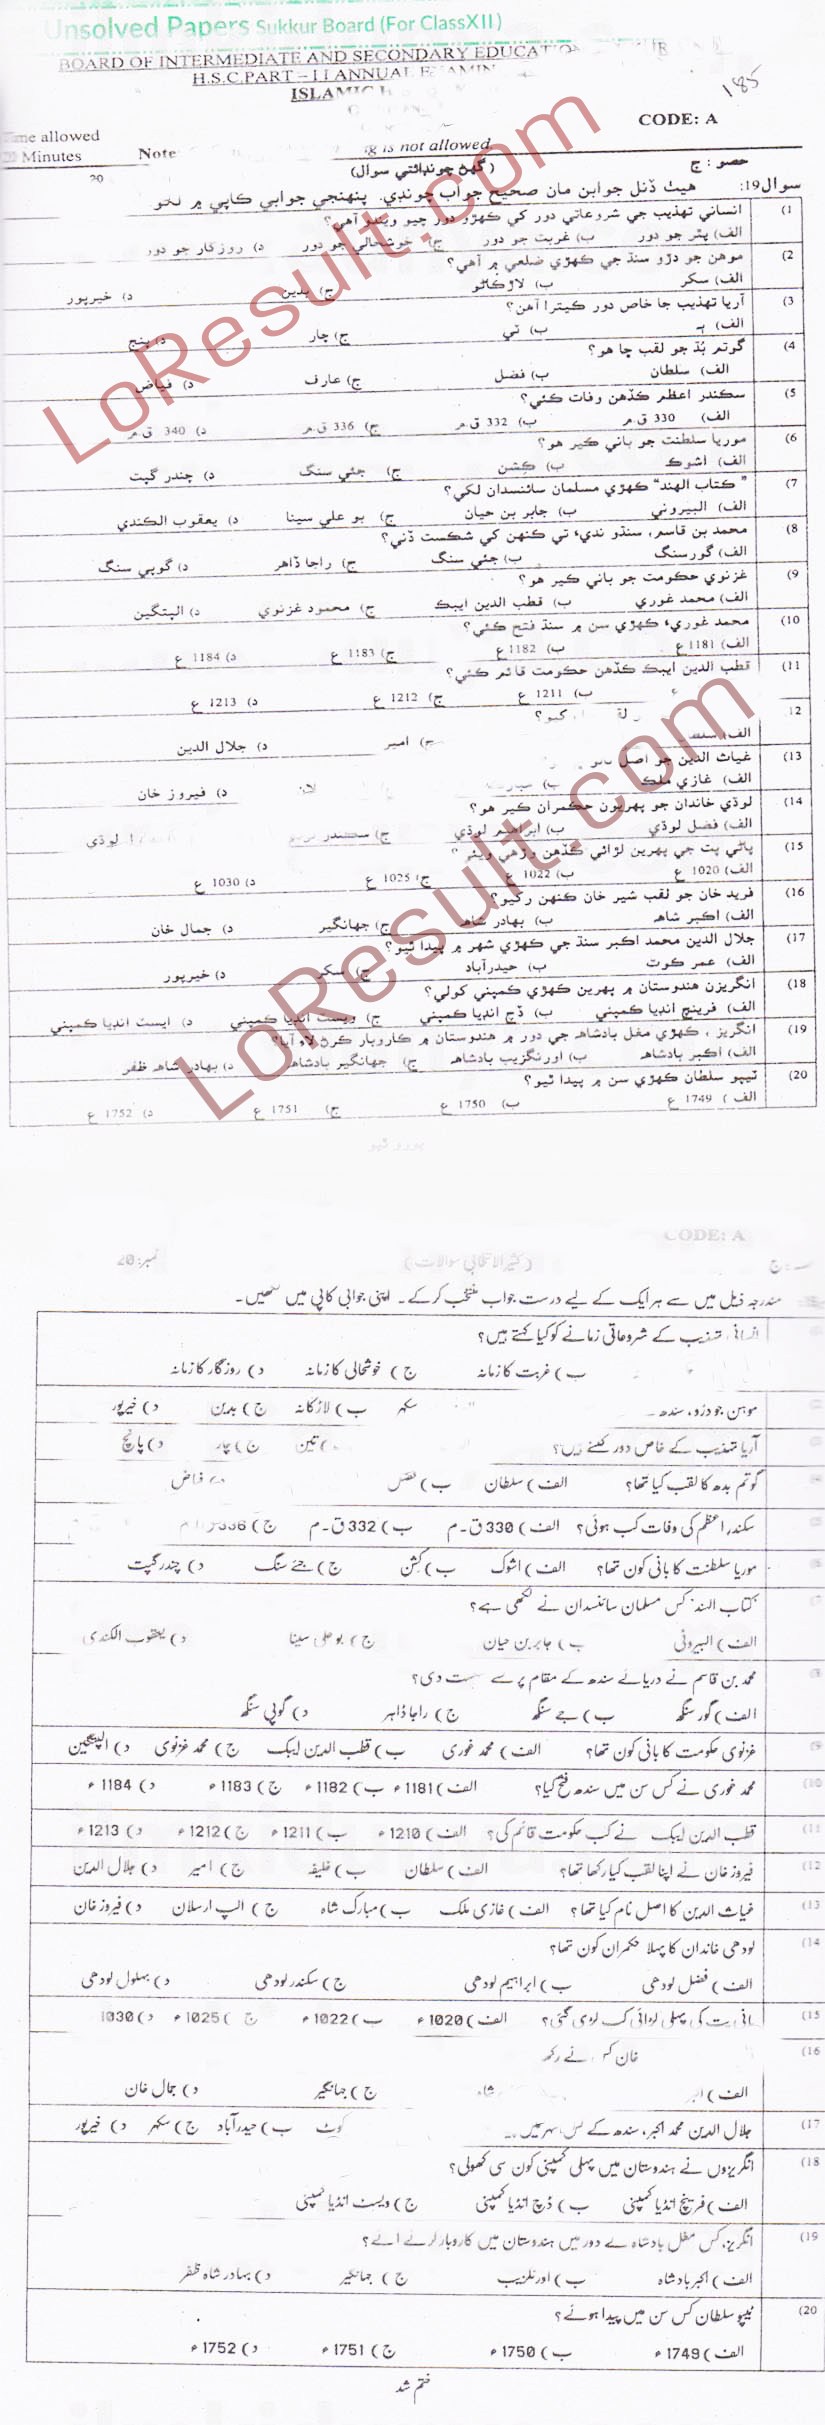 Unsolved Papers Sukkur Board (For ClassXII)
BOARD OF INTERMEDIATE AND SECONDARY EDUCATION
H.S.C.PART – II ANNUAL
ISLAMIC
185
CODE: A
Time allowed
20 Minutes
Note
is not allowed
حصو : ج
(گهڻ چونڊائتي سوال)
20
سوال 19: هيٺ ڏنل جوابن مان صحيح جواب چونڊي، پنهنجي جوابي ڪاپي ۾ لکو
1) انساني تهذيب جي شروعاتي دور کي ڪهڙو دور چيو ويندو آهي؟
الف) پٿر جو دور ب) غربت جو دور ج) خوشحالي جو دور د) روزگار جو دور
2) موهن جو دڙو سنڌ جي ڪهڙي ضلعي ۾ آهي؟
الف) سکر ب) لاڙڪاڻو ج) بدين د) خيرپور
3) آريا تهذيب جا خاص دور ڪيترا آهن؟
الف) ٻه ب) ٽي ج) چار د) پنج
4) گوتم ٻڌ جو لقب ڇا هو؟
الف) سلطان ب) فضل ج) عارف د) فياض
5) سڪندر اعظم ڪڏهن وفات ڪئي؟
الف) 330 ق.م ب) 332 ق.م ج) 336 ق.م د) 340 ق.م
6) موريا سلطنت جو باني ڪير هو؟
الف) اشوڪ ب) ڪشن ج) جئي سنگ د) چندر گپت
7) "ڪتاب الهند" ڪهڙي مسلمان سائنسدان لکي؟
الف) البيروني ب) جابر بن حيان ج) بو علي سينا د) يعقوب الڪندي
8) محمد بن قاسم، سنڌو نديءَ تي ڪنهن کي شڪست ڏني؟
الف) گورسنگ ب) جئي سنگ ج) راجا ڏاهر د) گوپي سنگ
9) غزنوي حڪومت جو باني ڪير هو؟
الف) محمد غوري ب) قطب الدين ايبڪ ج) محمود غزنوي د) الپتگين
10) محمد غوريءَ ڪهڙي سن ۾ سنڌ فتح ڪئي؟
الف) 1181 ع ب) 1182 ع ج) 1183 ع د) 1184 ع
11) قطب الدين ايبڪ ڪڏهن حڪومت قائم ڪئي؟
ب) 1211 ع ج) 1212 ع د) 1213 ع
12
الف) ج) امير د) جلال الدين
13) غياث الدين جو اصل
الف) غازي ملڪ ب) د) فيروز خان
14) لوڌي خاندان جو پهريون حڪمران ڪير هو؟
الف) فضل لوڌي ب) ابراهيم لوڌي ج) سڪندر لوڌي
15) پاڻي پت جي پهرين لڙائي ڪڏهن وڙهي ويئي؟
الف) 1020 ع ب) 1022 ع ج) 1025 ع د) 1030 ع
16) فريد خان جو لقب شير خان ڪنهن رکيو؟
الف) اڪبر شاهه ب) بهادر شاهه ج) جهانگير د) جمال خان
17) جلال الدين محمد اڪبر سنڌ جي ڪهڙي شهر ۾ پيدا ٿيو؟
الف) عمر ڪوٽ ب) حيدرآباد ج) سکر د) خيرپور
18) انگريزن هندوستان ۾ پهرين ڪهڙي ڪمپني کولي؟
الف) فرينچ انڊيا ڪمپني ب) ڊچ انڊيا ڪمپني ج) ويسٽ انڊيا ڪمپني د) ايسٽ انڊيا ڪمپني
19) انگريز، ڪهڙي مغل بادشاهه جي دور ۾ هندوستان ۾ ڪاروبار ڪرڻ لاءِ آيا؟
الف) اڪبر بادشاهه ب) اورنگزيب بادشاهه ج) جهانگير بادشاهه د) بهادر شاهه ظفر
20) ٽيپو سلطان ڪهڙي سن ۾ پيدا ٿيو؟
الف) 1749 ع ب) 1750 ع ج) 1751 ع د) 1752 ع
پورو ٿيو
CODE: A
ج (کثیر الانتخابی سوالات) نمبر: 20
مندرجہ ذیل میں سے ہر ایک کے لیے درست جواب منتخب کرکے۔ اپنی جوابی کاپی میں لکھیں۔
انسانی تہذیب کے شروعاتی زمانے کو کیا کہتے ہیں؟
ب) غربت کا زمانہ ج) خوشحالی کا زمانہ د) روزگار کا زمانہ
موہن جو دڑو، سندھ سکھر ب) لاڑکانہ ج) بدین د) خیرپور
آریا تہذیب کے خاص دور کتنے ہیں؟ تین ج) چار د) پانچ
گوتم بدھ کا لقب کیا تھا؟ الف) سلطان ب) فضل فیاض
سکندر اعظم کی وفات کب ہوئی؟ الف) 330 ق۔م ب) 332 ق۔م ج) 336
موریا سلطنت کا بانی کون تھا؟ الف) اشوک ب) کشن ج) جئے سنگ د) چندر گپت
کتاب الہند کس مسلمان سائنسدان نے لکھی ہے؟
الف) البیرونی ب) جابر بن حیان ج) بو علی سینا د) یعقوب الکندی
محمد بن قاسم نے دریائے سندھ کے مقام پر سے دی؟
الف) گور سنگھ ب) جے سنگھ ج) راجا ڈاہر د) گوپی سنگھ
غزنوی حکومت کا بانی کون تھا؟ الف) محمد غوری ب) قطب الدین ایبک ج) محمد غزنوی د) الپتگین
10) محمد غوری نے کس سن میں سندھ فتح کیا؟ الف) 1181ء ب) 1182ء ج) 1183ء د) 1184ء
11) قطب الدین ایبک نے کب حکومت قائم کی؟ الف) 1210ء ب) 1211ء ج) 1212ء د) 1213ء
12) فیروز خان نے اپنا لقب کیا رکھا تھا؟ الف) سلطان ب) خلیفہ ج) امیر د) جلال الدین
13) غیاث الدین کا اصل نام کیا تھا؟ الف) غازی ملک ب) مبارک شاہ ج) الپ ارسلان د) فیروز خان
14) لودھی خاندان کا پہلا حکمران کون تھا؟
الف) فضل لودھی ب) ابراہیم لودھی ج) سکندر لودھی د) بہلول لودھی
15) پانی پت کی پہلی لڑائی کب لڑی گئی؟ الف) 1020ء ب) 1022ء ج) 1025ء د) 1030
16) خان نے رکھ
الف) شاہ ج) جہانگیر د) جمال خان
17) جلال الدین محمد اکبر، سندھ کے کوٹ ب) حیدرآباد ج) سکھر د) خیرپور
18) انگریزوں نے ہندوستان میں پہلی کمپنی کون سی کھولی؟
الف) فرینچ انڈیا کمپنی ب) ڈچ انڈیا کمپنی ج) ویسٹ انڈیا کمپنی
19) انگریز، کس مغل بادشاہ کے دور میں ہندوستان میں کاروبار کرنے آئے؟
الف) اکبر بادشاہ ب) اورنگزیب ج) جہانگیر د) بہادر شاہ ظفر
20) ٹیپو سلطان کس سن میں پیدا ہوئے؟
الف) 1749ء ب) 1750ء ج) 1751ء د) 1752ء
ختم شد
LoResult.com
LoResult.com